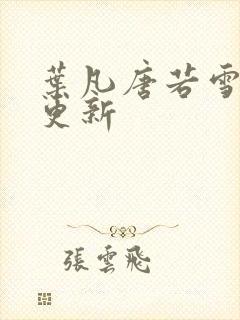 葉凡唐若雪
更新
張雲飛